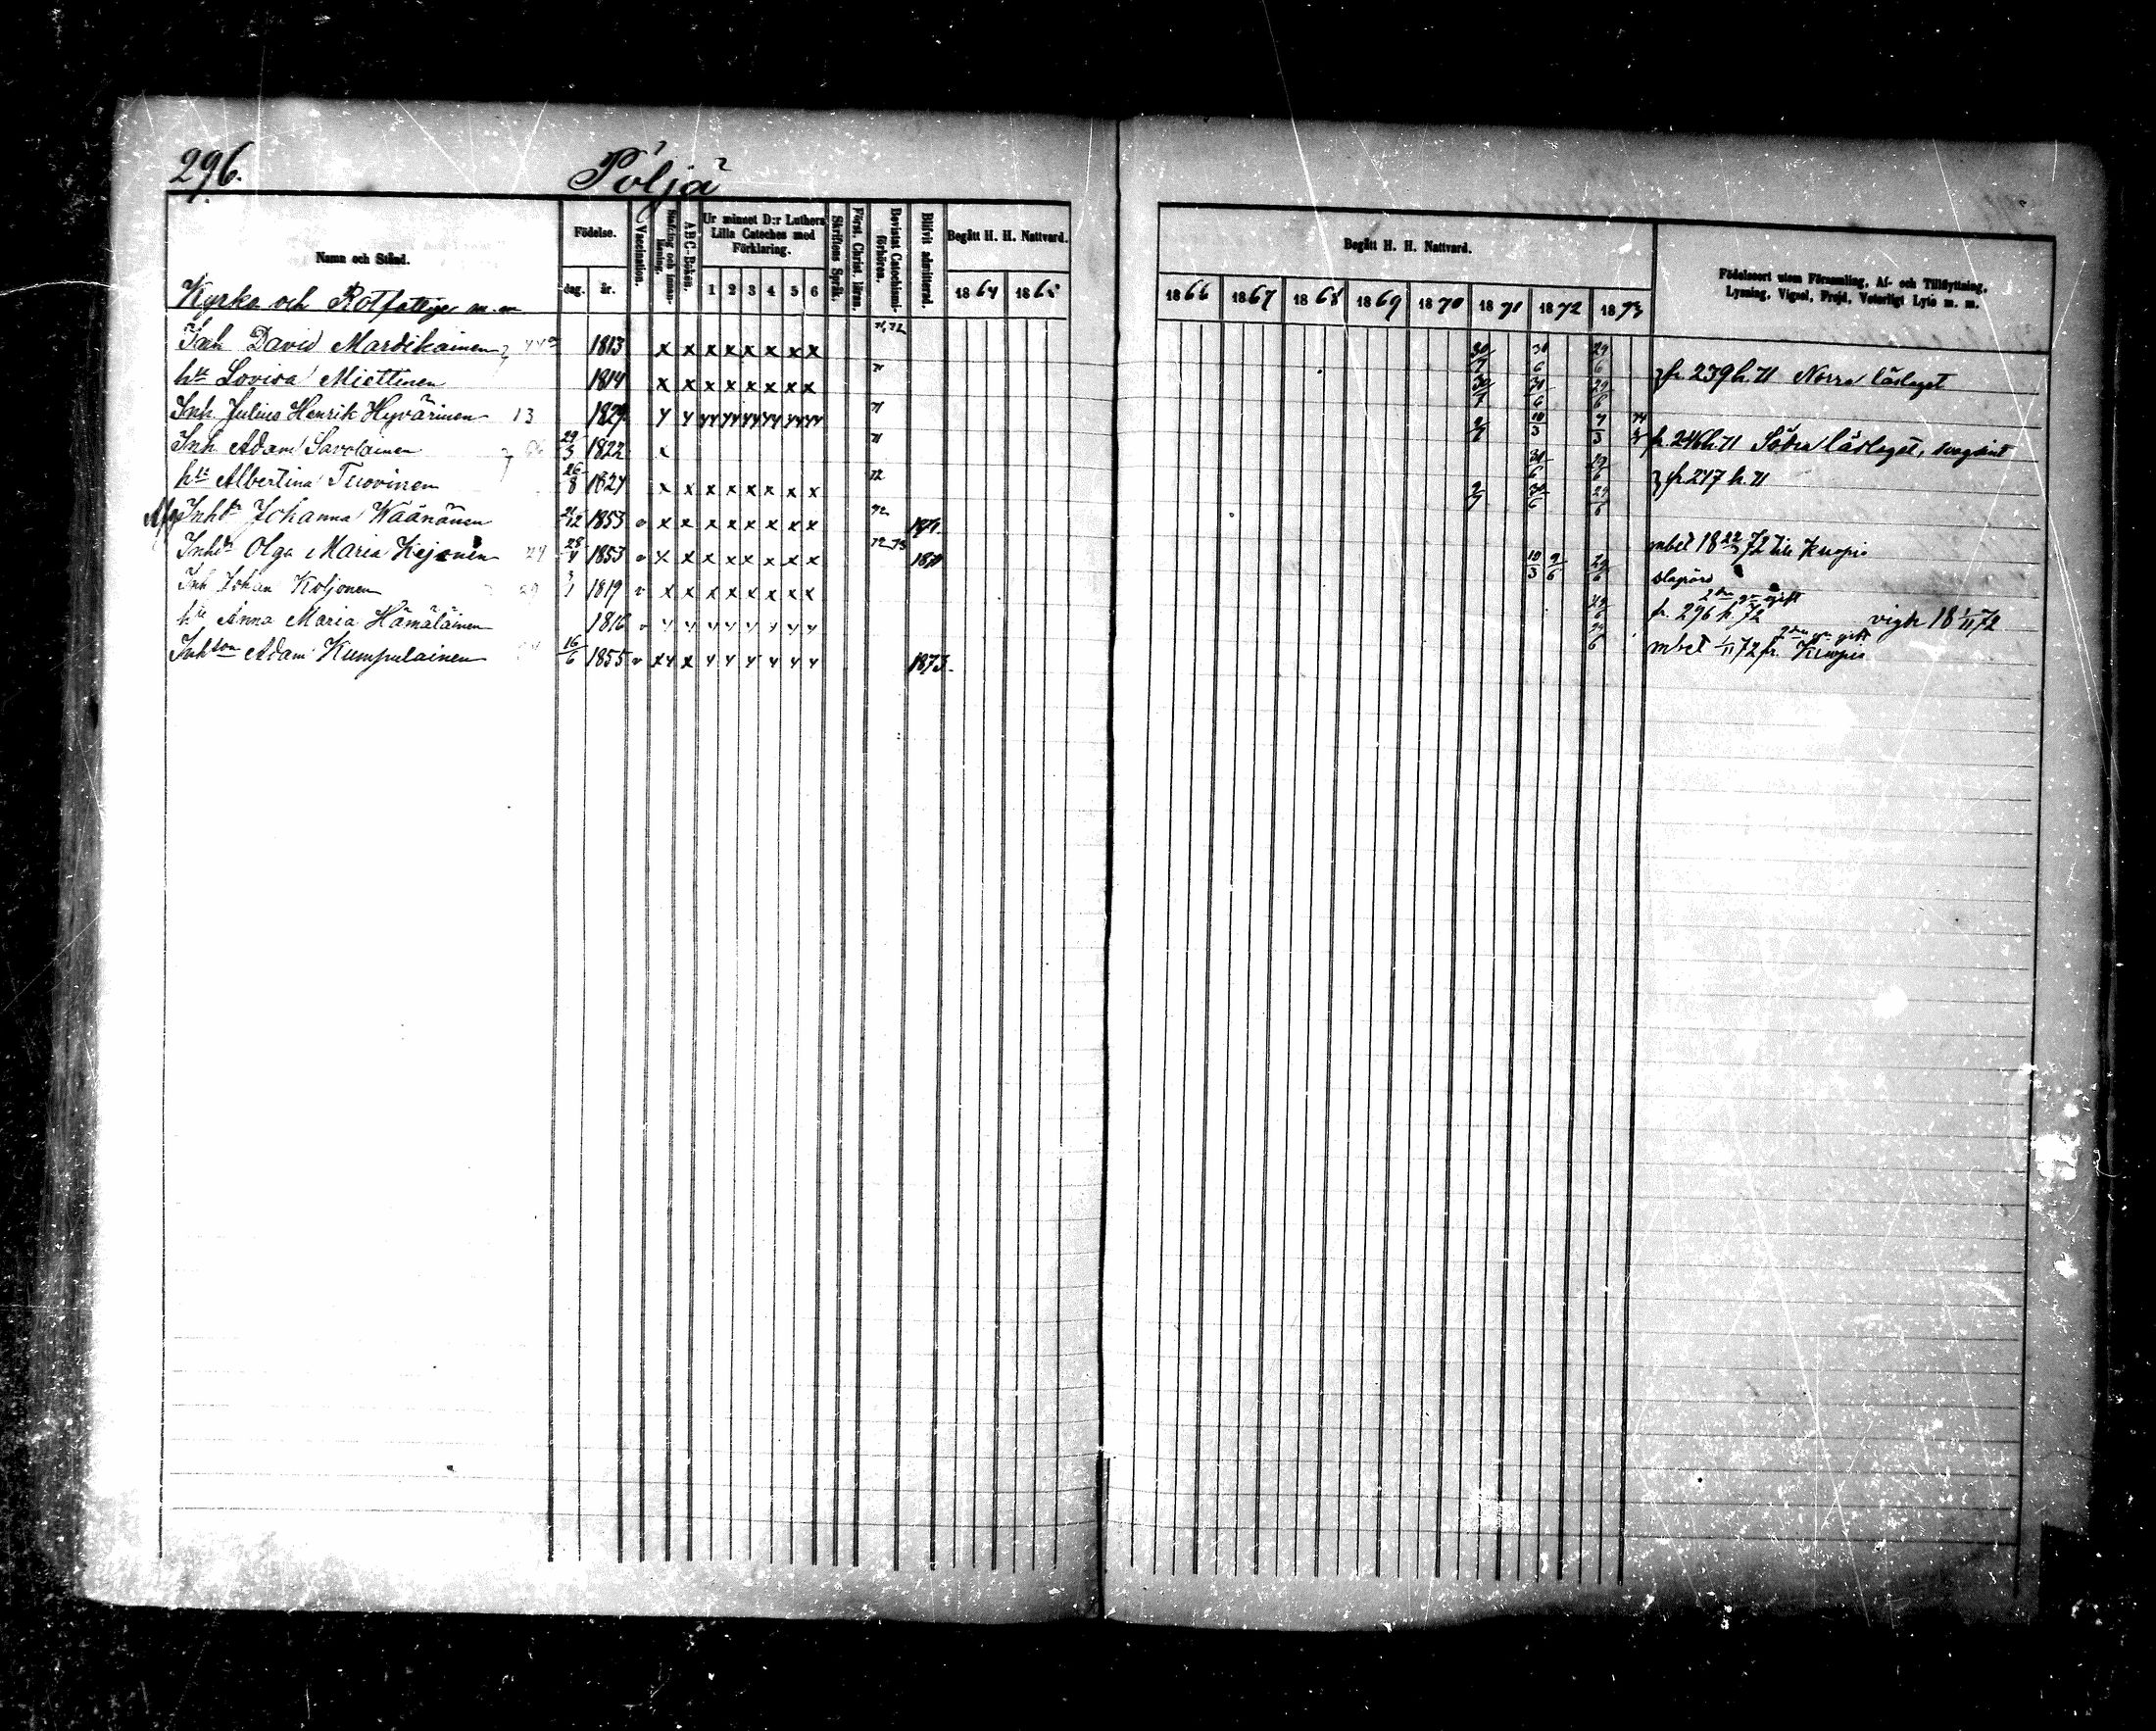 296.
Pöljä
Namn och Stånd.
Födelse.
dag. år.
Vaccination.
Stafning och innan-läsning.
A B C-Boken.
Ur minnet D:r Luthers Lilla Cateches med Förklaring.
1 2 3 4 5 6
Skriftens Språk.
Först. Christ. läran.
Bevistat Catechismi-förhören.
Blifvit admitterad.
Begått H. H. Nattvard.
1864 1865
Begått H. H. Nattvard.
1866 1867 1868 1869 1870 1871 1872 1873
Födelseort utom Församling, Af- och Tillflyttning,
Lysning, Vigsel, Frejd, Veterligt Lyte m. m.
Kyrko och Rotfattige m.m
Inh David Mardikainen 1813 x x x x x x x x 71,72 30/7 30/6 29/6
hu Lovisa Miettinen 1814 x x x x x x x x 71 30/7 30/6 29/6 fr 239 h. 71 Norra läslaget
Inh Julius Henrik Hyvärinen 13 1829 71 2/7 10/3 7/3
Inh Adam Savolainen 29/3 1822 x 71 30/6 29/6 fr. 246 h. 71 Södra läslaget, svagsint
hu Albertina Tuovinen 26/8 1824 x x x x x x x x 72 2/7 30/6 29/6 fr 247 h. 71
Inh Johanna Wäänänen 21/12 1853 v x x x x x x x x 72 1871.
Inh Olga Maria Kejonen 24 28/4 1853 v x x x x x x x x 72_73 1871 10/3 9/6 29/6 mbet 18 22/ 72 till Kuopio
Inh Johan Koljonen 29 3/1 1819 v x x x x x x x x 29/6
hu Anna Maria Hämäläinen 1816 v 29/6 fr. 296 h. 72 2dra gn gift vigde 18 1/11 72
Inhson Adam Kumpulainen 16/6 1855 v 1873. mbet 1/11 72 fr. Kuopio 2dra gn gift